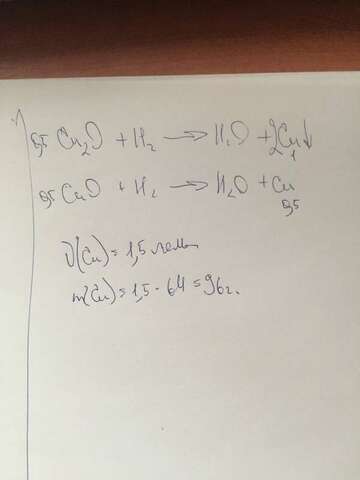 0,5 Cu₂O + H₂ → H₂O + 2Cu↓
1
0,5 CuO + H₂ → H₂O + Cu
0,5
ν(Cu) = 1,5 моль
m(Cu) = 1,5 · 64 = 96 г.